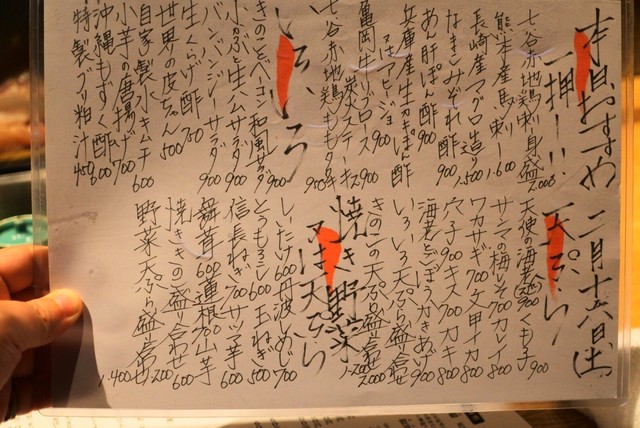 本日おすすめ 二月十六日(土)
一押し!!
七谷赤地鶏刺身盛 2,000
熊本産馬刺し 1,600
長崎産マグロ造り 1,500
なまこみぞれ酢 900
あん肝ぽん酢 900
兵庫産生カキぽん酢
又はアヒージョ 900
亀岡牛リブロース
炭火ステーキ 900
七谷赤地鶏ももタタキ 950
いろいろ
きのことベーコン和風サラダ 900
小かぶと生ハムサラダ 900
バンバンジーサラダ 900
生くらげ酢 750
世界の皮ちゃん 500
自家製水キムチ 600
小芋の唐揚げ 700
沖縄もずく酢 600
特製ブリ粕汁 450
天ぷら
天使の海老 900 くも子 900
サンマの梅しそ 700 カレイ 800
ワカサギ 700 文甲イカ 800
穴子 900 キス 700 カキ 800
海老とごぼうかきあげ 900
いろいろ天ぷら盛り合せ 2,000
きのこの天ぷら盛り合せ 1,200
焼き野菜
又は天ぷら
しいたけ 600 丹波しめじ 700
とうもろこし 600 玉ねぎ 500
信長ねぎ 700 サツマ芋 600
舞茸 600 蓮根 700 山芋 600
焼ききのこ盛り合せ 1,200
野菜天ぷら盛り合せ 1,400